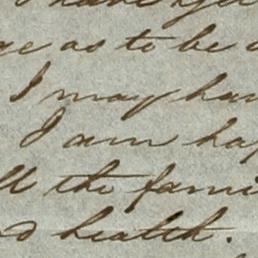 have
as to be
I may hav
I am hap
ll the fami
d health.